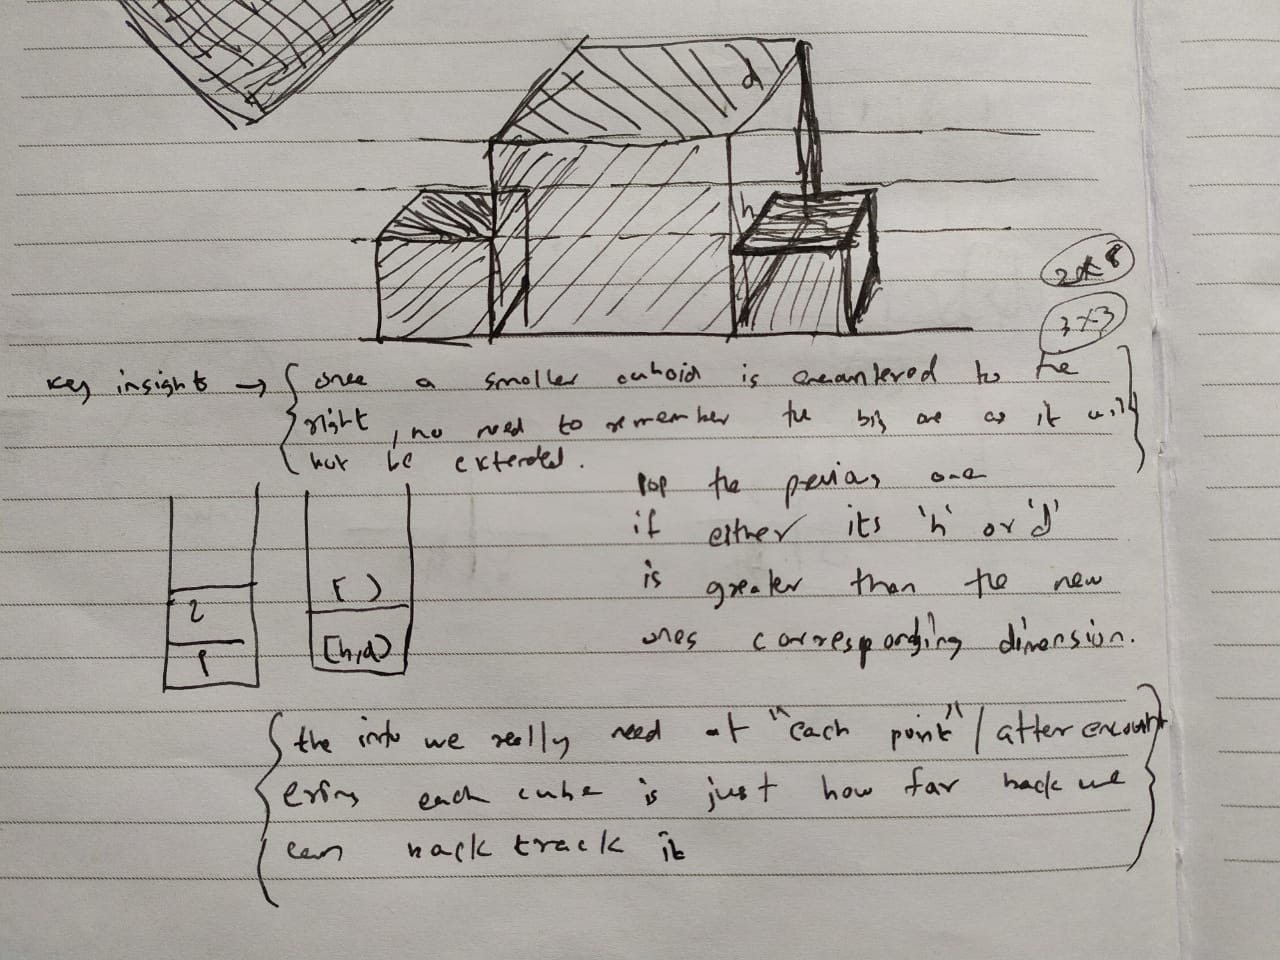 d
h
2x8
3x3
Key insights → { once a smaller cuboid is encountered to the
right, no need to remember the big one as it will
not be extended. }
pop the previous one
if either its 'h' or 'd'
is greater than the new
ones corresponding dimension.
2
1
[ )
[h,d)
{ the info we really need at "each point" / after encount
ering each cube is just how far back we
can back track it }